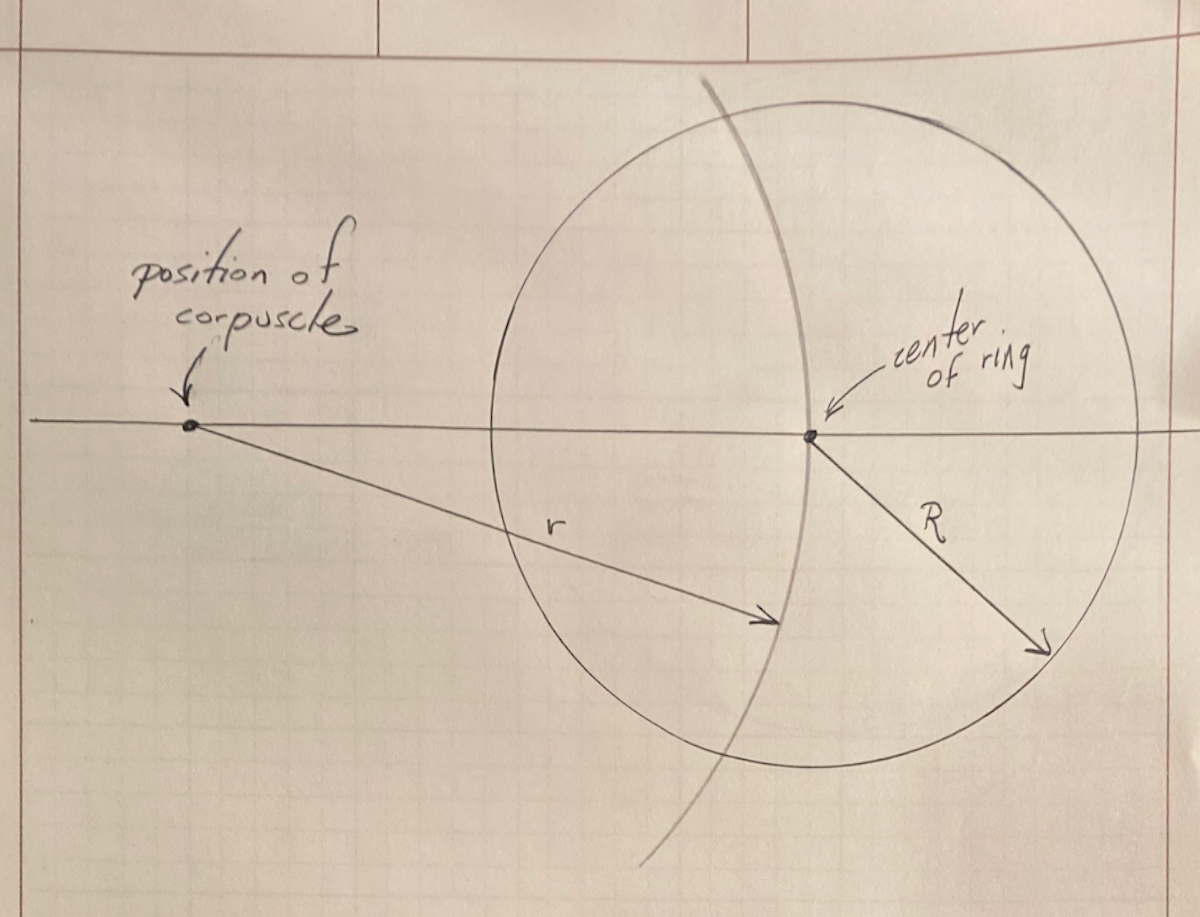 position of
corpuscle
center
of ring
r
R